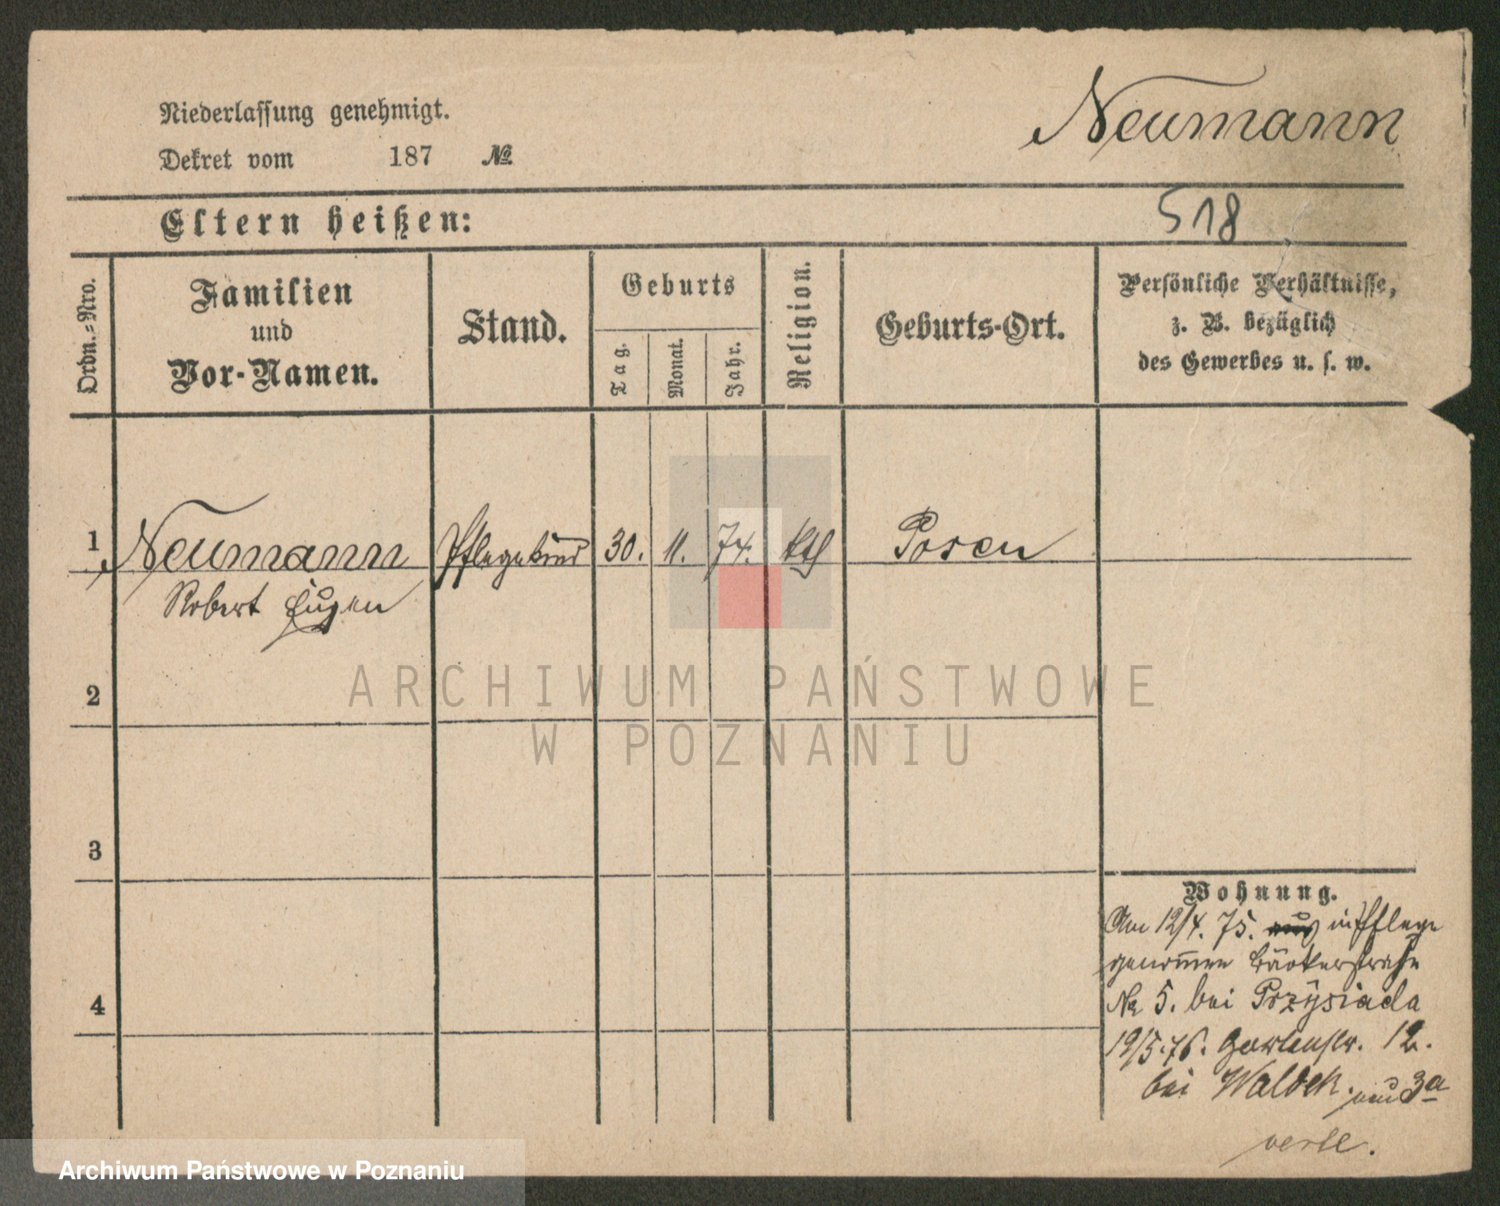 Niederlassung genehmigt.
Neumann
Dekret vom 187 №
518
Eltern heißen:
Ordn.-Nro.
Familien
und
Vor-Namen.
Stand.
Geburts
Tag.
Monat.
Jahr.
Religion.
Geburts-Ort.
Persönliche Verhältnisse,
z. B. bezüglich
des Gewerbes u. s. w.
1 Neumann Pflegekind 30. 11. 74. kth Posen
Robert Eugen
2
3
4
Wohnung.
Am 12/4. 75. aus in Pflege
genom̅en Bäckerstraße
№ 5. bei Przysiada
19/5. 76. Gartenstr. 12.
bei Waldek. neu 3a
ARCHIWUM PAŃSTWOWE
W POZNANIU
Archiwum Państwowe w Poznaniu